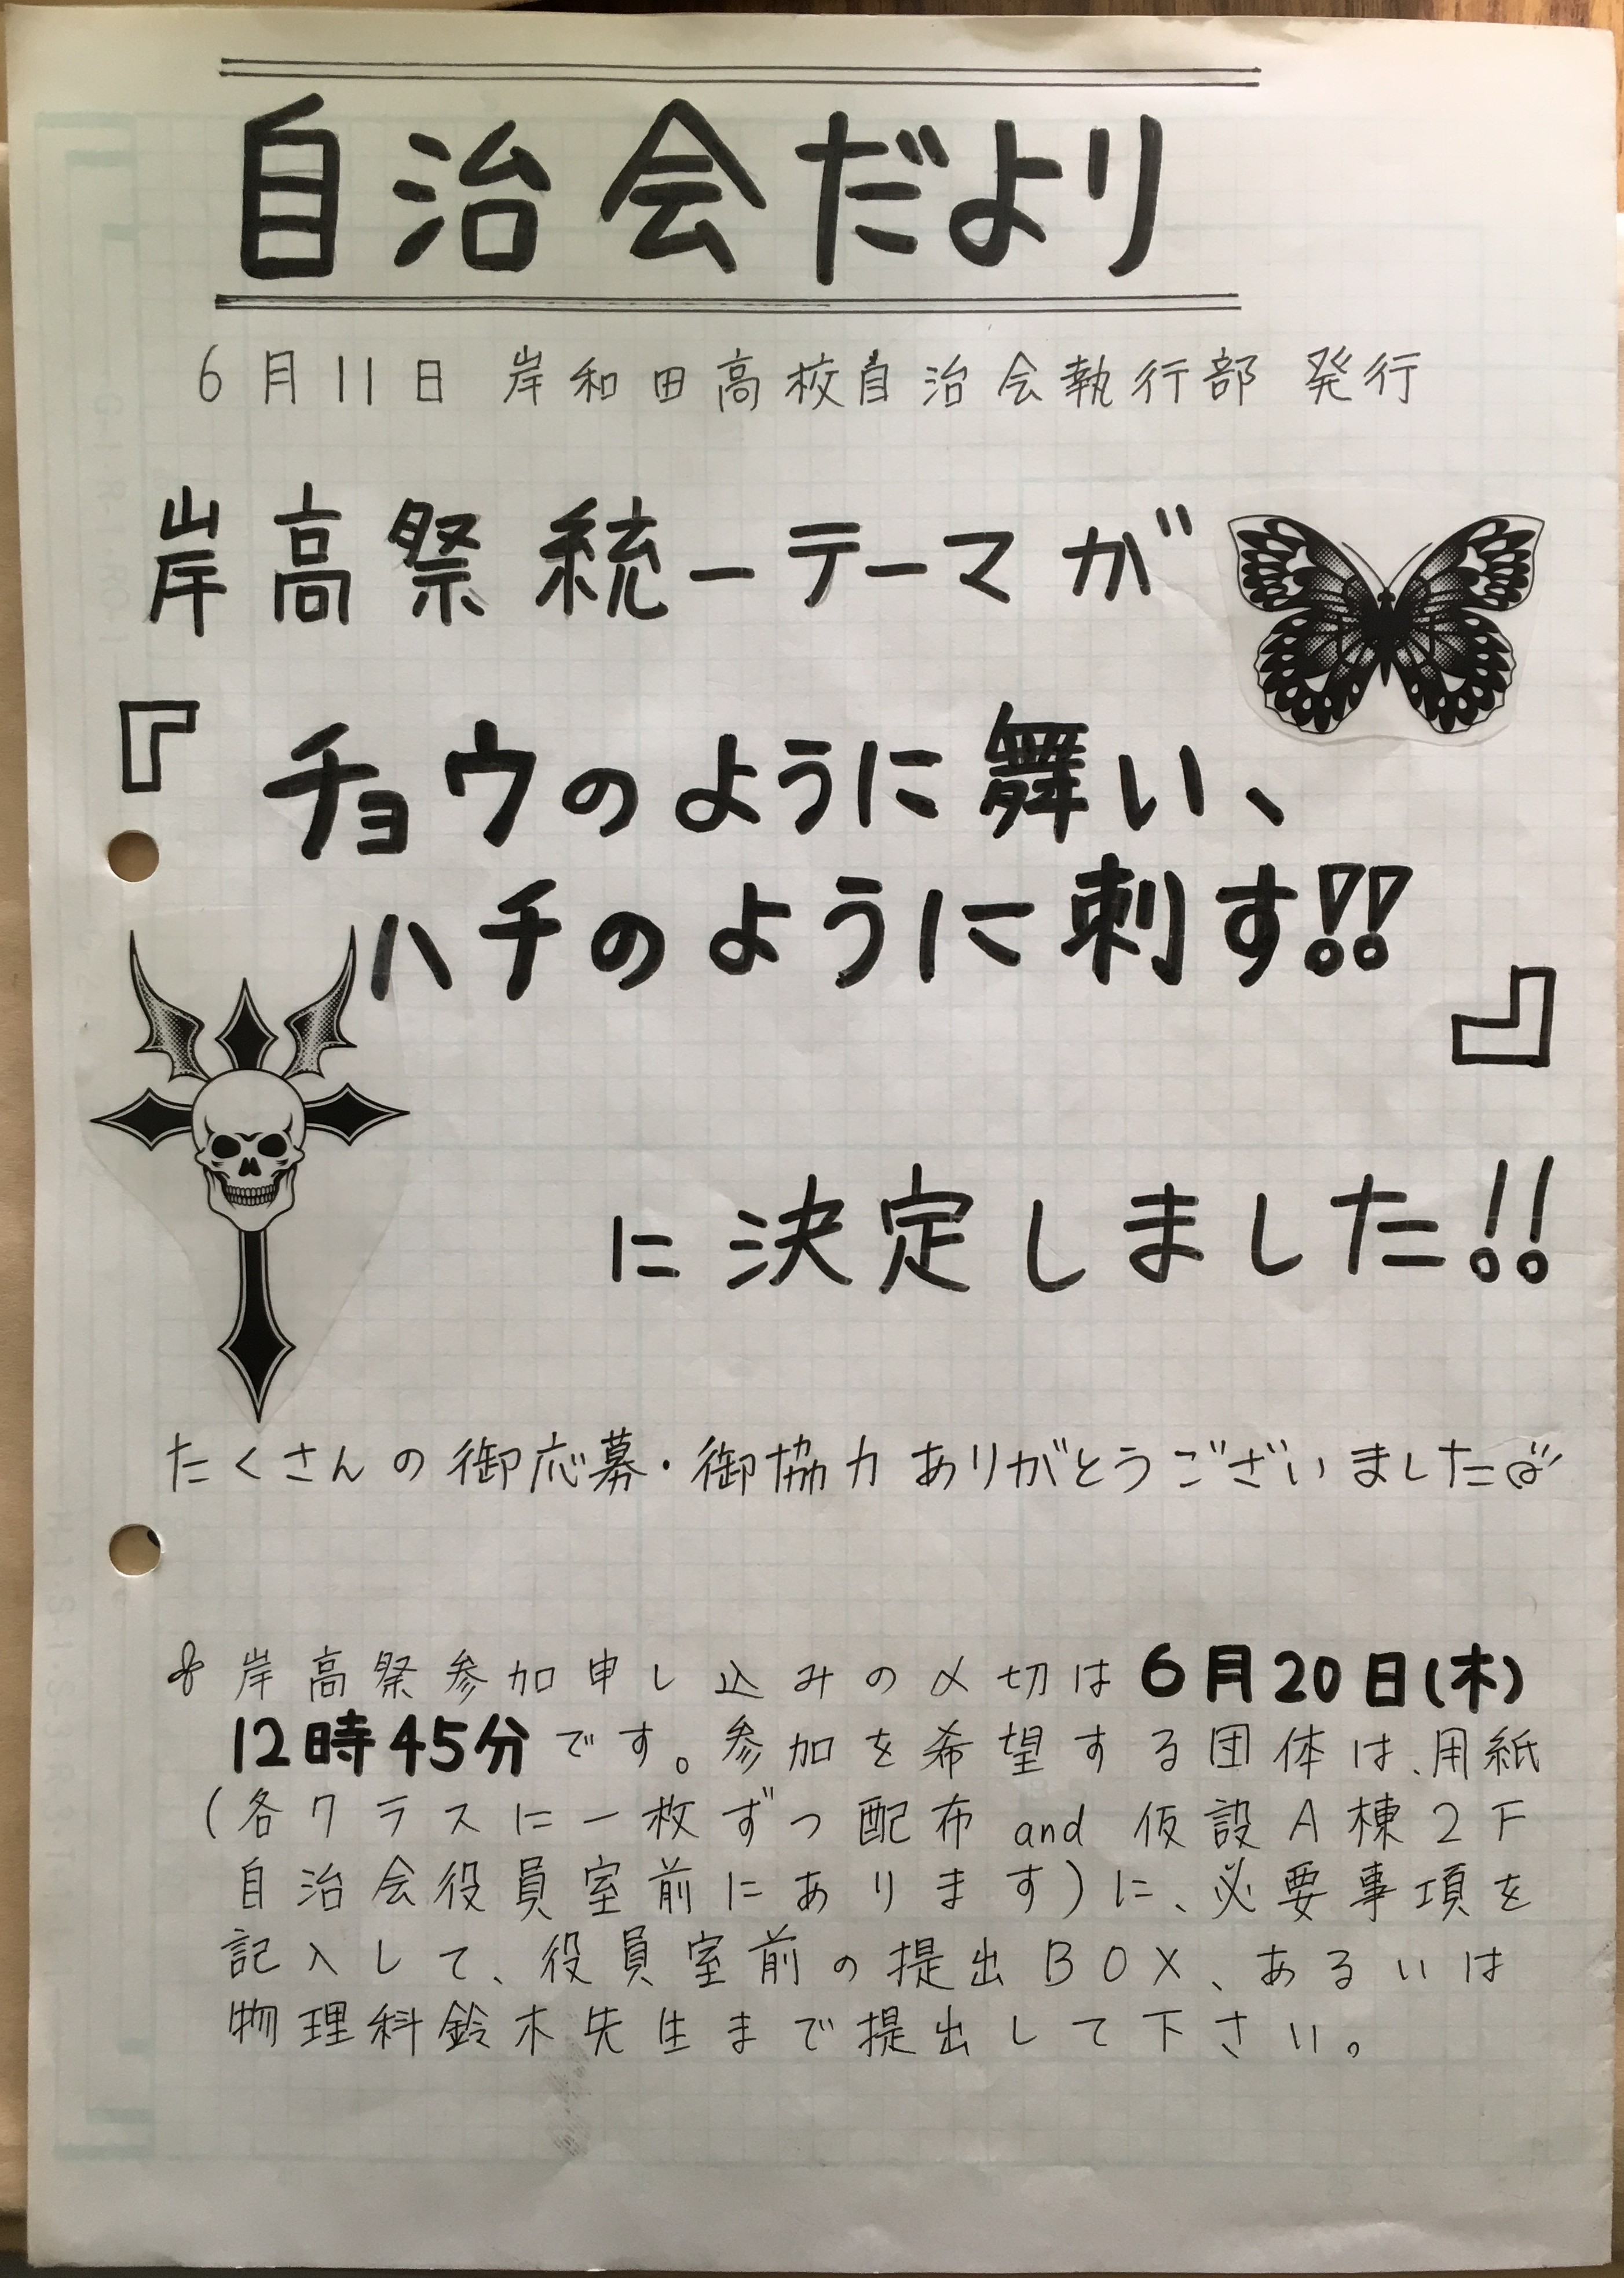 自治会だより
6月11日 岸和田高校自治会執行部 発行
岸高祭統一テーマが
『チョウのように舞い、
ハチのように刺す!!』
に決定しました!!
たくさんの御応募・御協力ありがとうございました
岸高祭参加申し込みの〆切は6月20日(木)
12時45分です。参加を希望する団体は、用紙
(各クラスに一枚ずつ配布 and 仮設A棟2F
自治会役員室前にあります)に、必要事項を
記入して、役員室前の提出BOX、あるいは
物理科鈴木先生まで提出して下さい。